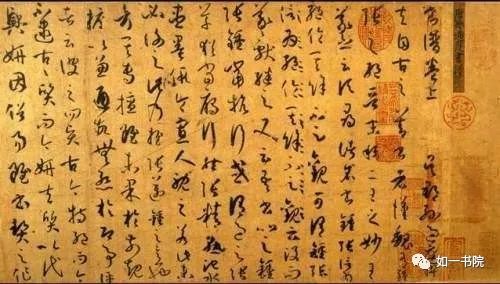 書譜卷上 吳郡孫過庭撰
夫自古之善書者漢魏有鍾
張之絕晉末稱二王之妙王
羲之云頃尋諸名書鍾張信
為絕倫其餘不足觀可謂鍾張
云沒而
羲獻繼之又云吾書比之鍾
張鍾當抗行或謂過之張
草猶當雁行然張精熟池水
盡墨假令寡人耽之若此未
必謝之此乃推張邁鍾之意也
考其專擅雖未果於前規
摭以兼通故無慚於即事評
者云彼之四賢古今特絕而今
不逮古古質而今妍夫質以代
興妍因俗易雖書契之作
如一书院